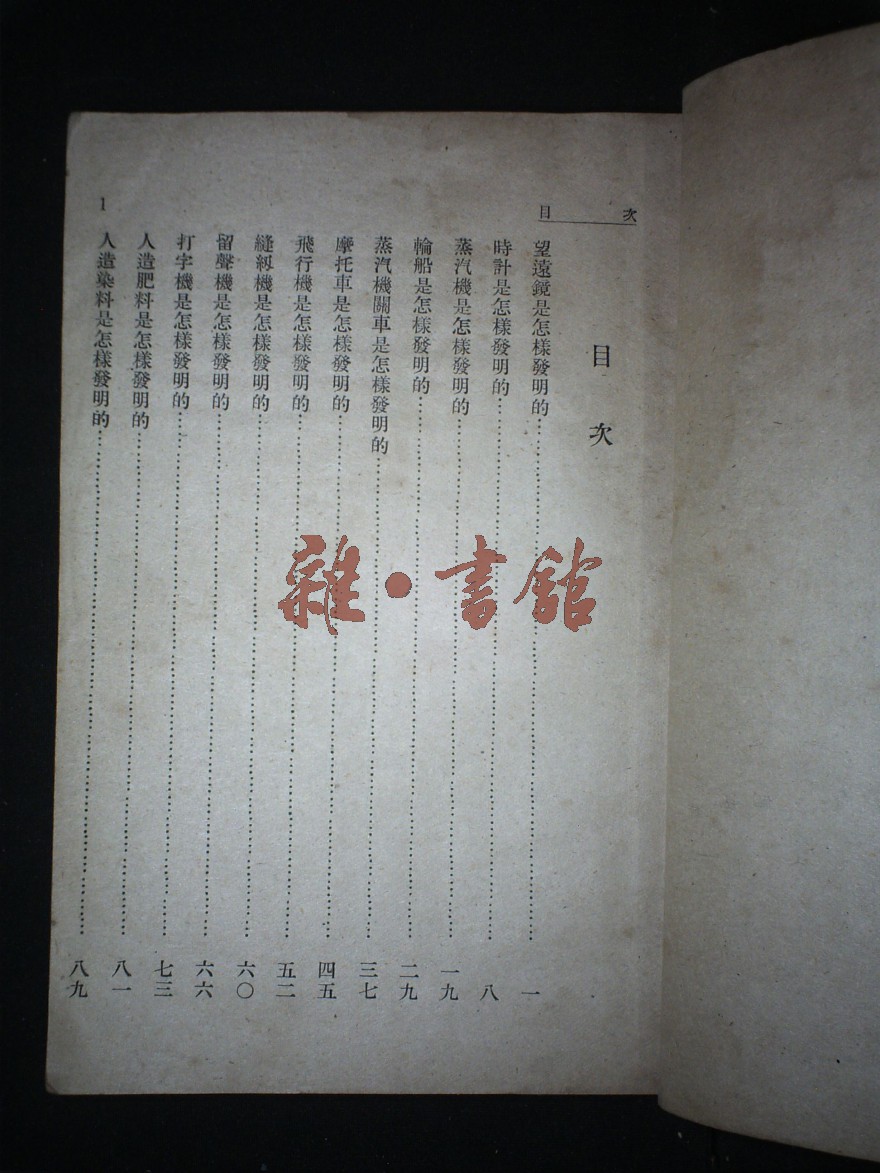 目次
目次
望遠鏡是怎樣發明的……一
時計是怎樣發明的……八
蒸汽機是怎樣發明的……一九
輪船是怎樣發明的……二九
蒸汽機關車是怎樣發明的……三七
摩托車是怎樣發明的……四五
飛行機是怎樣發明的……五二
縫紉機是怎樣發明的……六〇
留聲機是怎樣發明的……六六
打字機是怎樣發明的……七三
人造肥料是怎樣發明的……八一
人造染料是怎樣發明的……八九
1
雜·書館